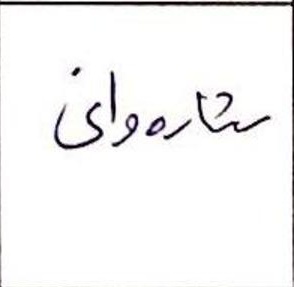 ستاره وانی